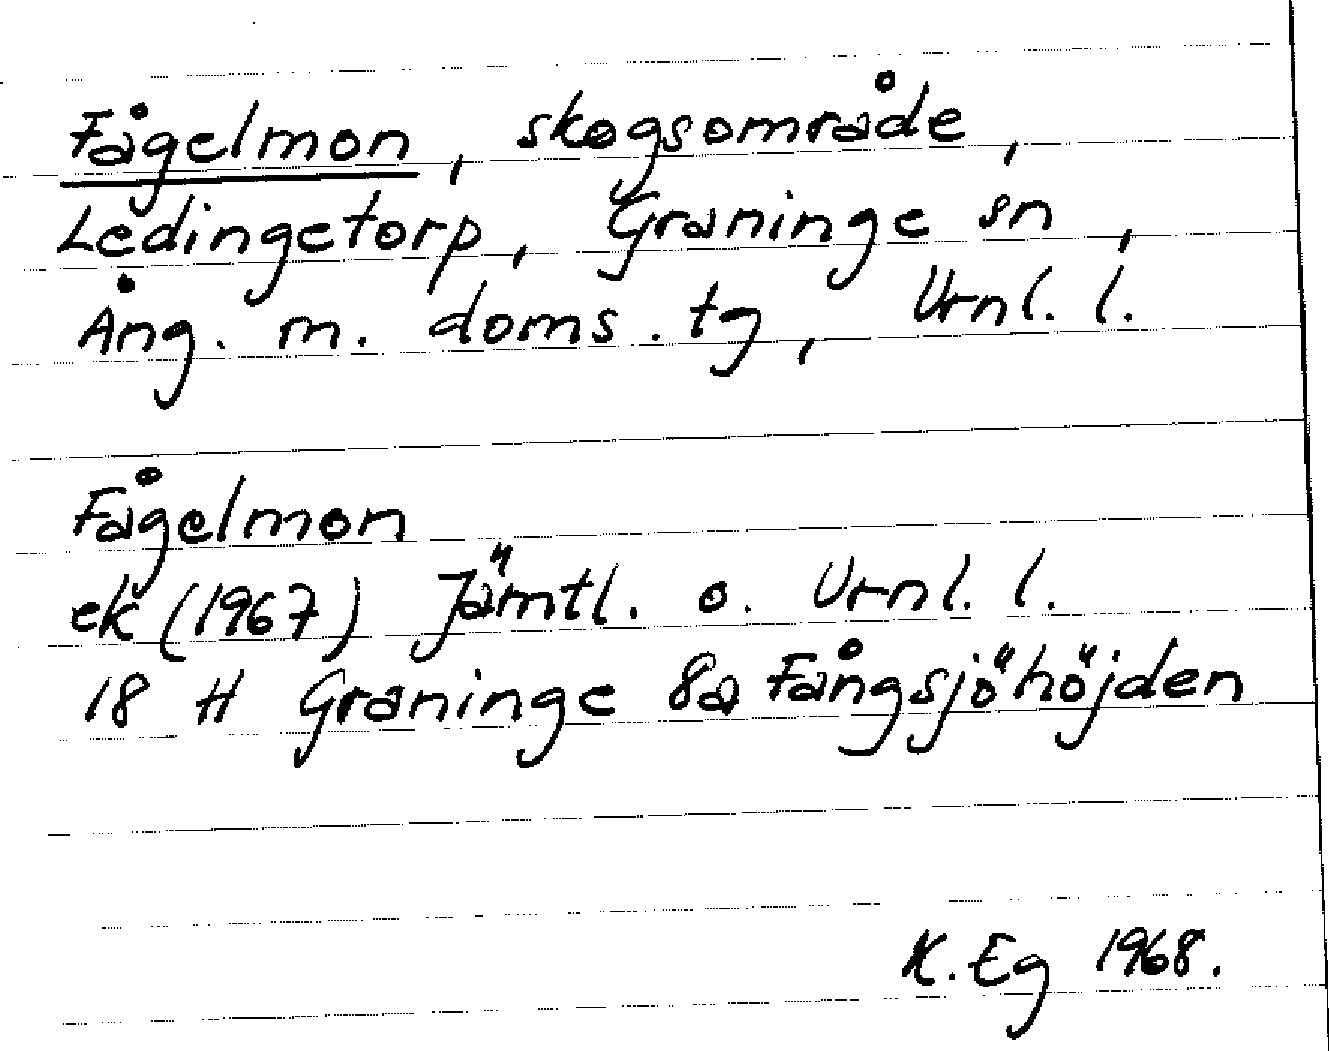 Fågelmon, skogsområde,
Ledingetorp, Graninge sn,
Ång. m. doms. tg, Vrnl. l.
Fågelmon
ek (1967) Jämtl. o. Vrnl. l.
18 H Graninge 8a Fångsjöhöjden
K. Eg 1968.